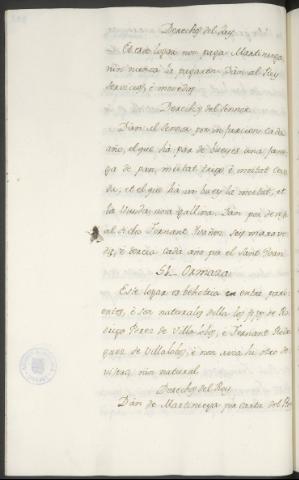 Derechos del Rey
Este logar non paga Martiniega,
nin nunca la pagaron. Dan al Rey
servicios, é monedas
Derechos del Sennor
Dan al Sennor por infurcion cada
año, el que há par de bueyes una fane-
ga de pan, mitat trigo é mitat ceva-
da, et el que há un buey la meitat, et
la viuda una gallina. Dan por
al dicho Fernant seys marave-
des, é tercia cada año por el Sant Joan
Ormaza
Este logar es behetria entre pari-
entes, é son naturales della los fijos de Ro-
drigo Perez de Villalobos, é Fernant Rodri-
guez de Villalobos, é non avia hi otro de-
visero, nin natural
Derechos del Rey
Dan de Martiniega por carta del